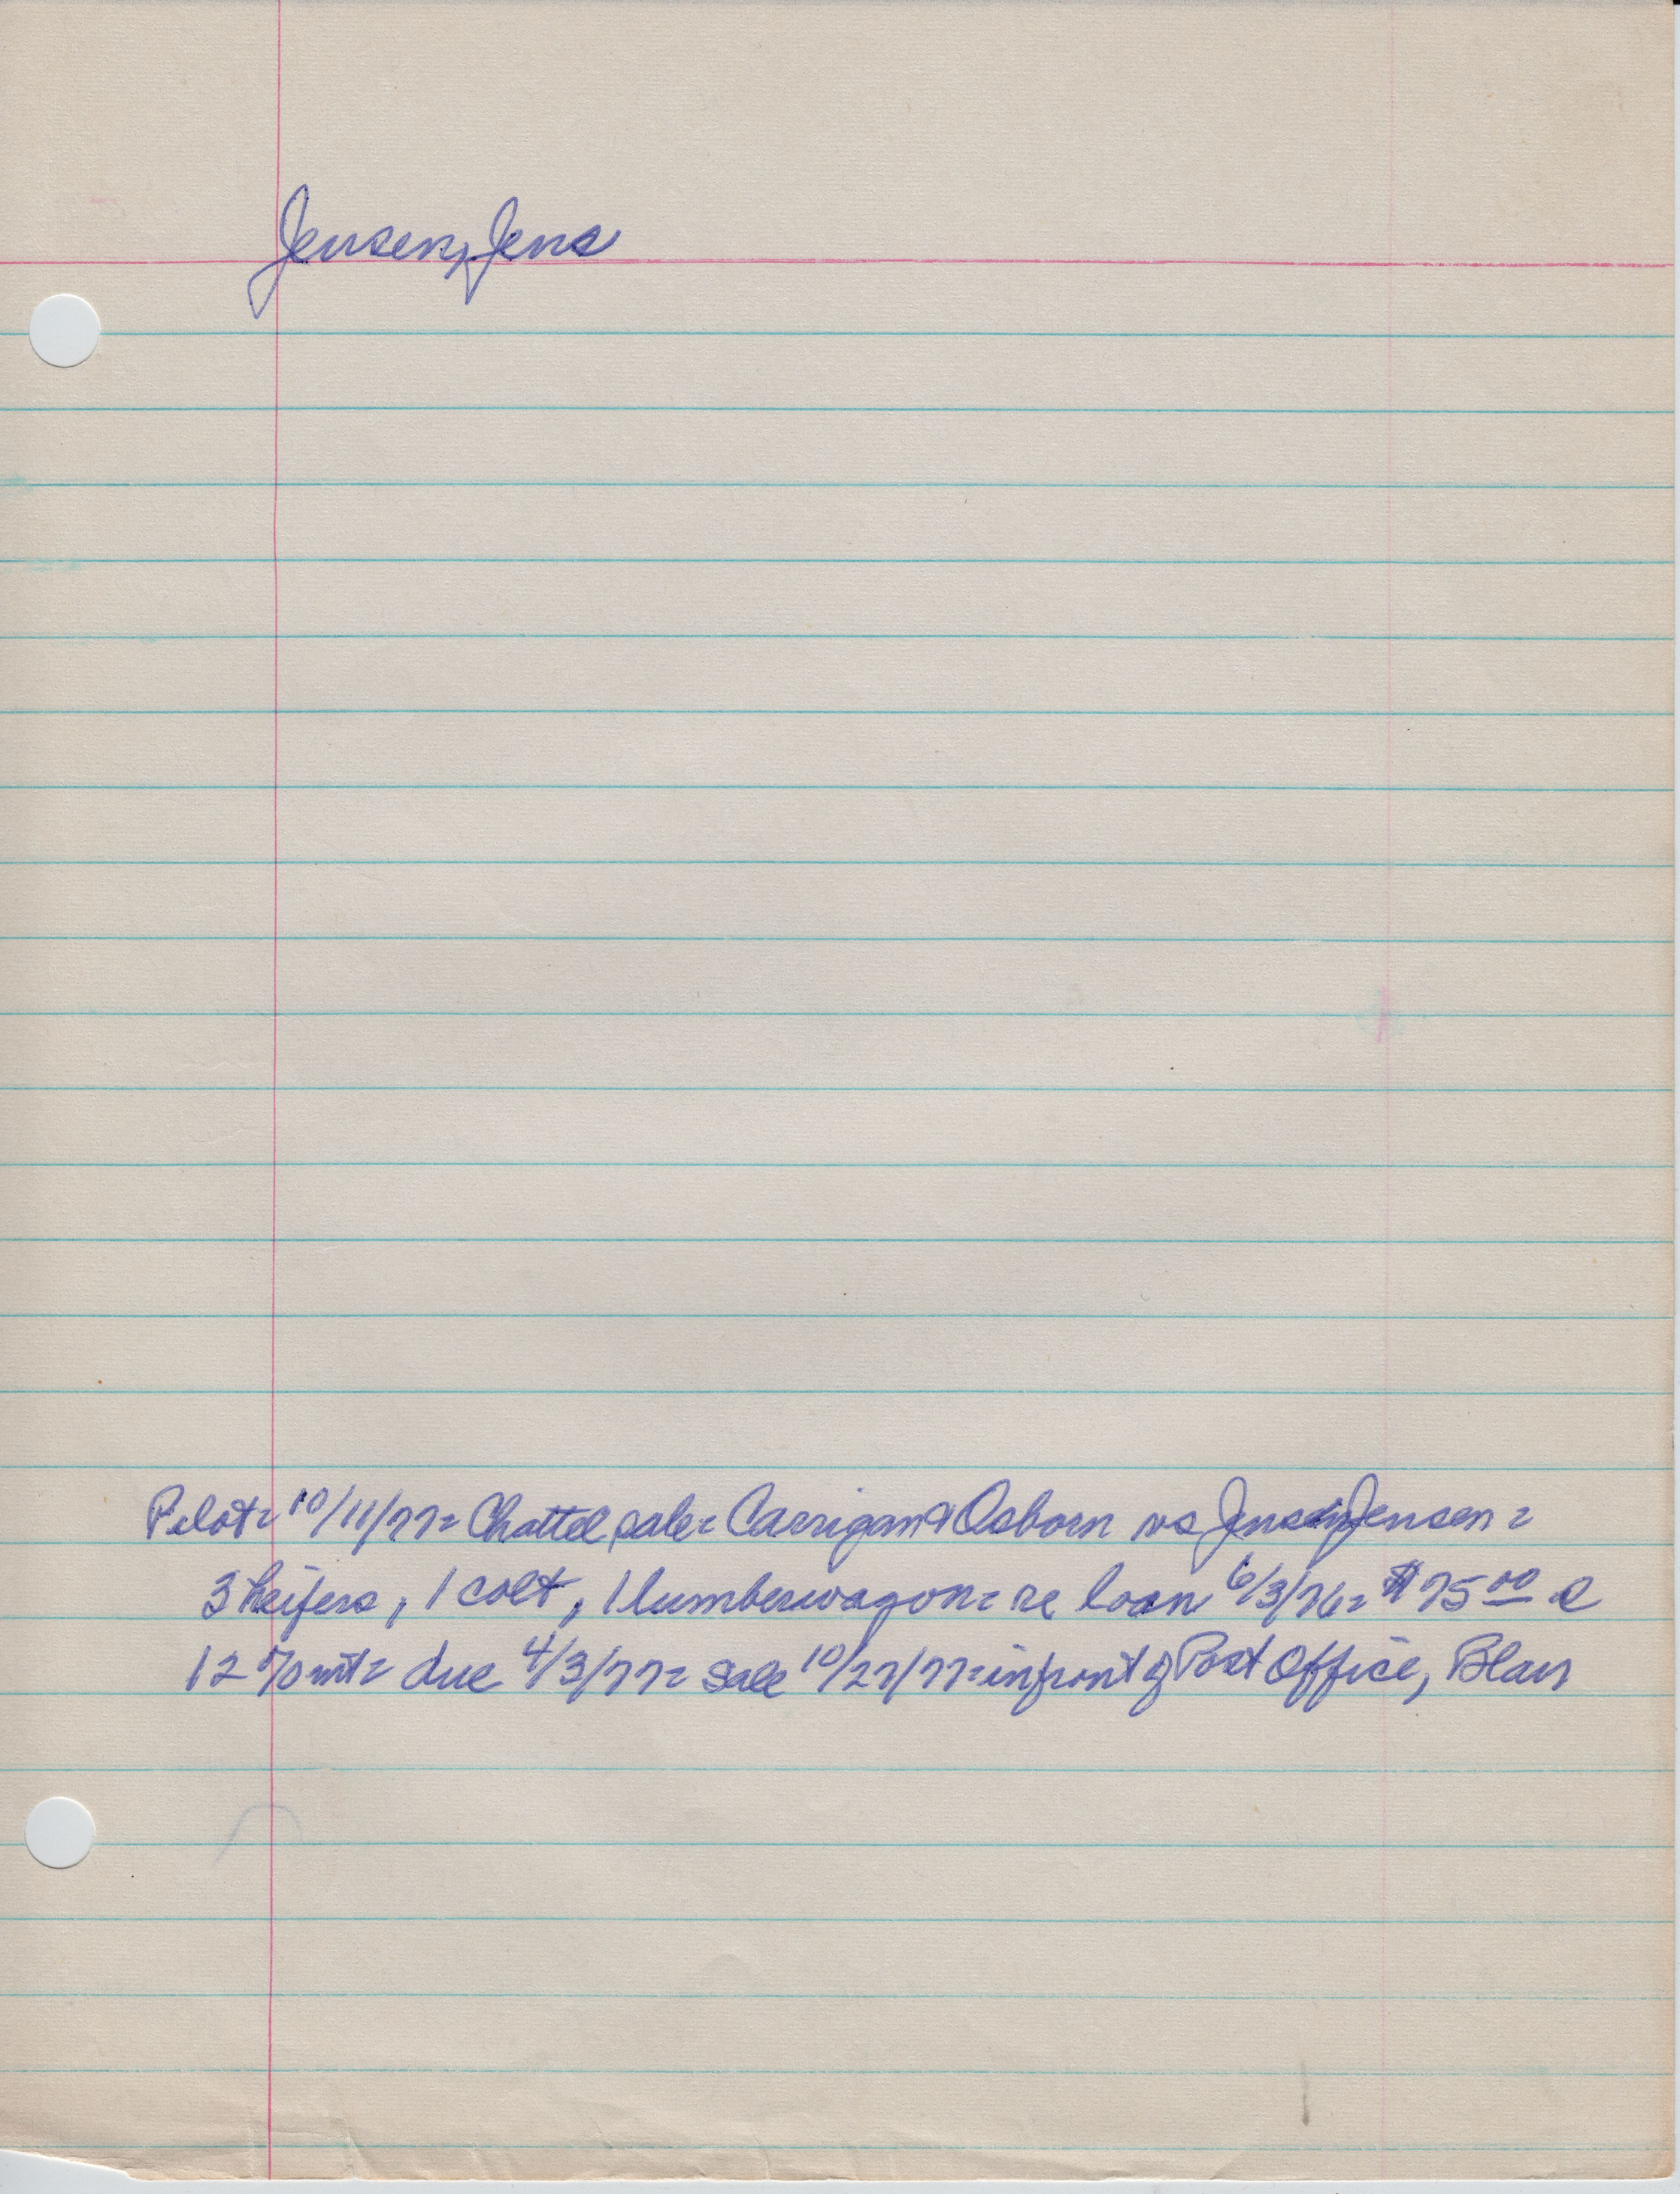 Jensen, Jens
Pilot = 10/11/77 = Chattel sale = Carrigan & Osborn vs Jensen =
3 heifers, 1 colt, 1 lumberwagon = re loan 6/3/76 = $75.00 @
12% int = due 4/3/77 = sale 10/27/77 = in front of Post Office, Blair